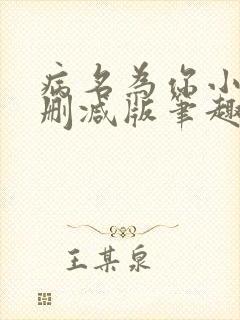 病名为你小
删减版笔趣
王某泉